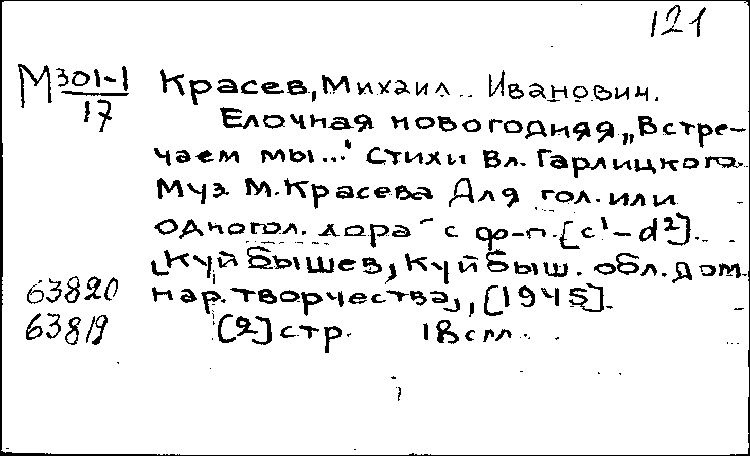 121
М 301-1/17 Красев, Михаил Иванович.
Елочная новогодняя „Встре-
чаем мы..." Стихи Вл. Гарлицкого.
Муз. М. Красева Для гол. или
одногол. хора с ф-п. [c¹-d²].
[Куйбышев, Куйбыш. обл. дом
63820 нар. творчества], [1945].
63819 [2] стр.